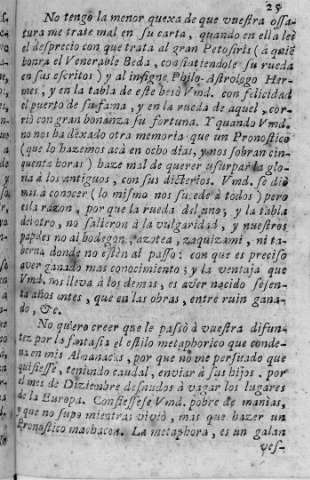 25
No tengo la menor quexa de que vuestra ossa-
tura me trate mal en su carta, quando en ella leo
el desprecio con que trata al gran Petosiris (à quiẽ
honra el Venerable Beda, confiatiendole su rueda
en sus escritos) y al insigne Philo-Astrologo Her-
mes, y en la tabla de este besò Vmd. con felicidad
el puerto de su fama, y en la rueda de aquel, cor-
riò con gran bonanza su fortuna. Y quando Vmd.
no nos ha dexado otra memoria que un Pronostico
(que lo hazemos acà en ocho dias, y nos sobran cin-
quenta horas) haze mal de querer usurpar la glo-
ria à los antiguos, con sus dicterios. Vmd. se diò
mas à conocer (lo mismo nos sucede à todos) pero
esta razon, por que la rueda del uno, y la tabla
del otro, no salieron à la vulgaridad, y nuestros
papeles no ai bodegon, azotea, zaquizami, ni ta-
berna donde no estèn al passo: con que es preciso
aver ganado mas conocimiento; y la ventaja que
Vmd. nos lleva à los demas, es aver nacido sesen-
ta años antes, que en las obras, entre ruin gana-
do, &c.
No quiero creer que le passò à vuestra difun-
tez por la fantasia el estilo metaphorico que conde-
na en mis Almanacks, por que no me persuado que
quisiesse, teniendo caudal, enviar à sus hijos, por
el mes de Diziembre desnudos à vagar los lugares
de la Europa. Confiessese Vmd. pobre de manias,
y que no supo mientras viviò, mas que hazer un
Pronostico machacon. La metaphora, es un galan
ves-